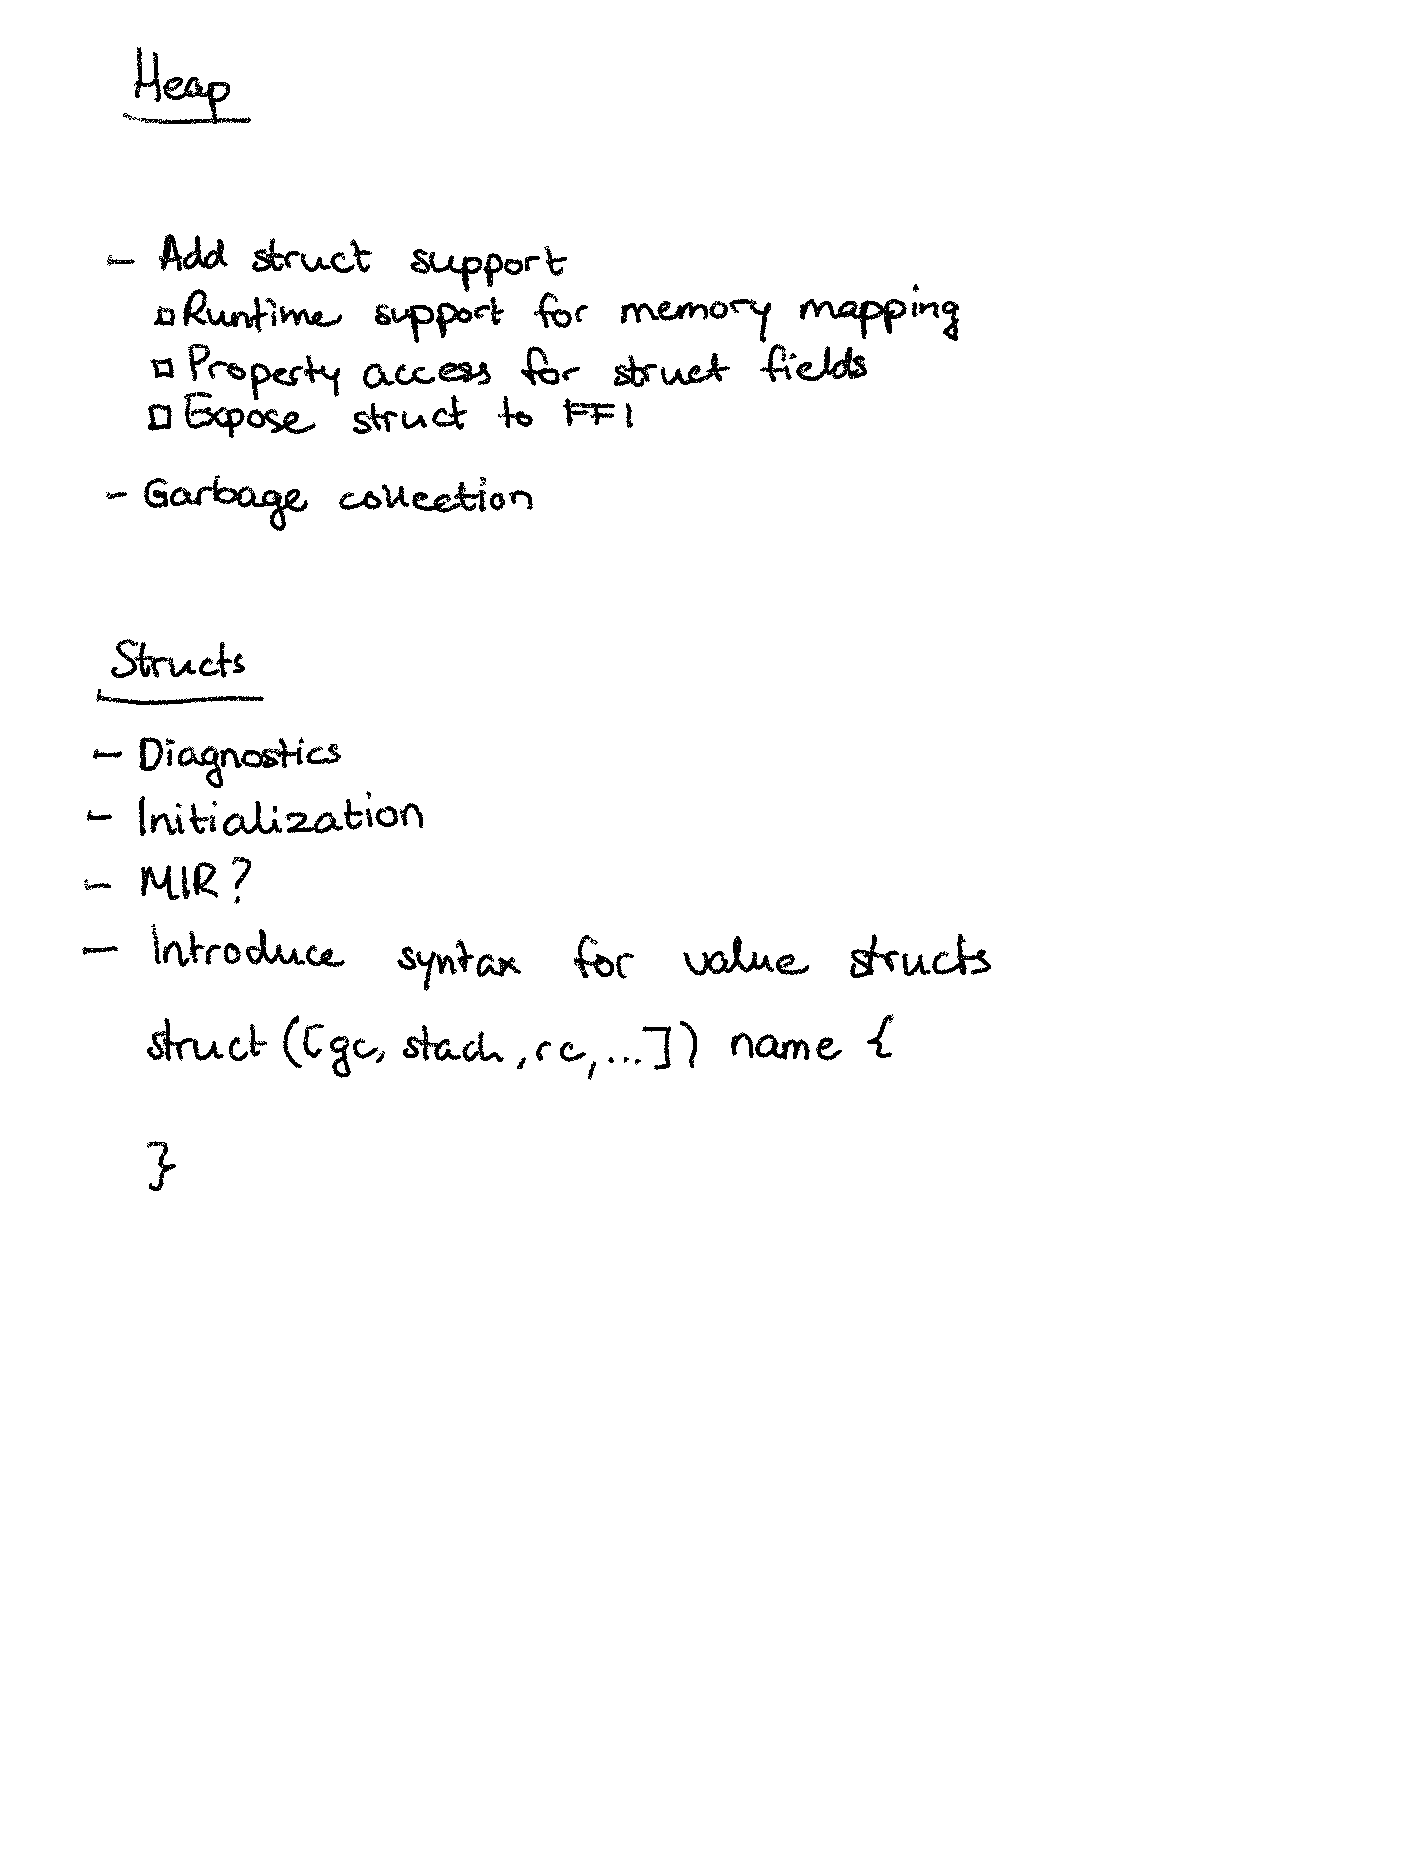 Heap
- Add struct support
□ Runtime support for memory mapping
□ Property access for struct fields
□ Expose struct to FFI
- Garbage collection
Structs
- Diagnostics
- Initialization
- MIR?
- Introduce syntax for value structs
struct ([gc, stack, rc, ...]) name {
}